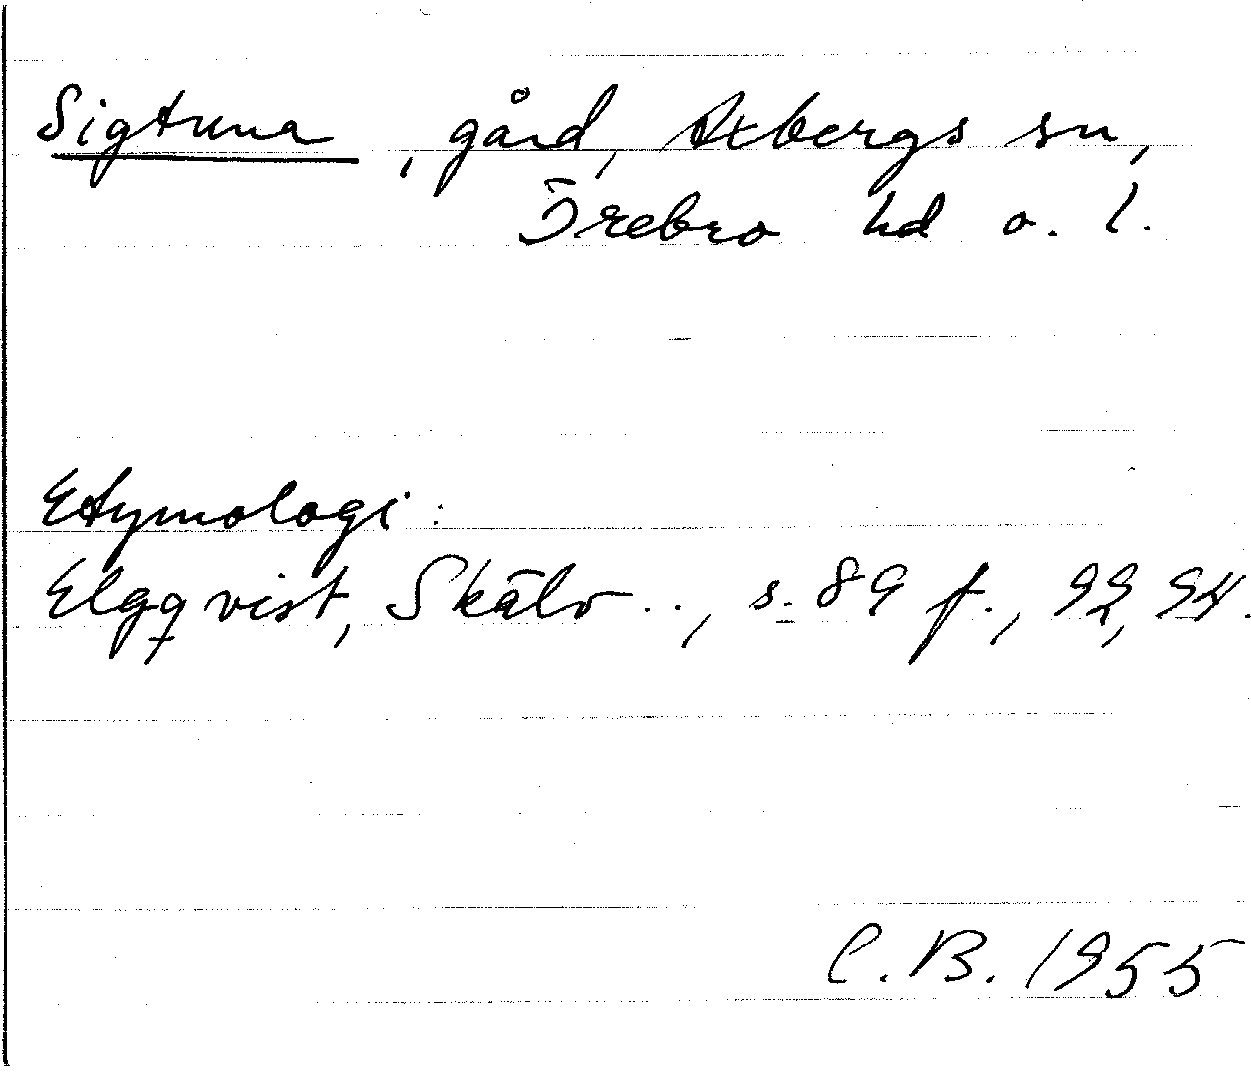 Sigtuna, gård, Axbergs sn,
Örebro hd o. l.
Etymologi:
Elgqvist, Skälv.., s. 89 f., 92, 94.
C.B. 1955